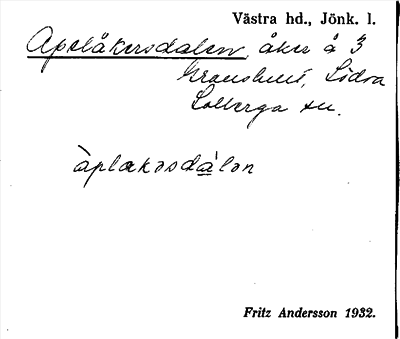 Västra hd., Jönk. l.
Apelåkersdalen, åker å 3
Granshult, Södra
Solberga sn.
àplakəsdá̱lən
Fritz Andersson 1932.